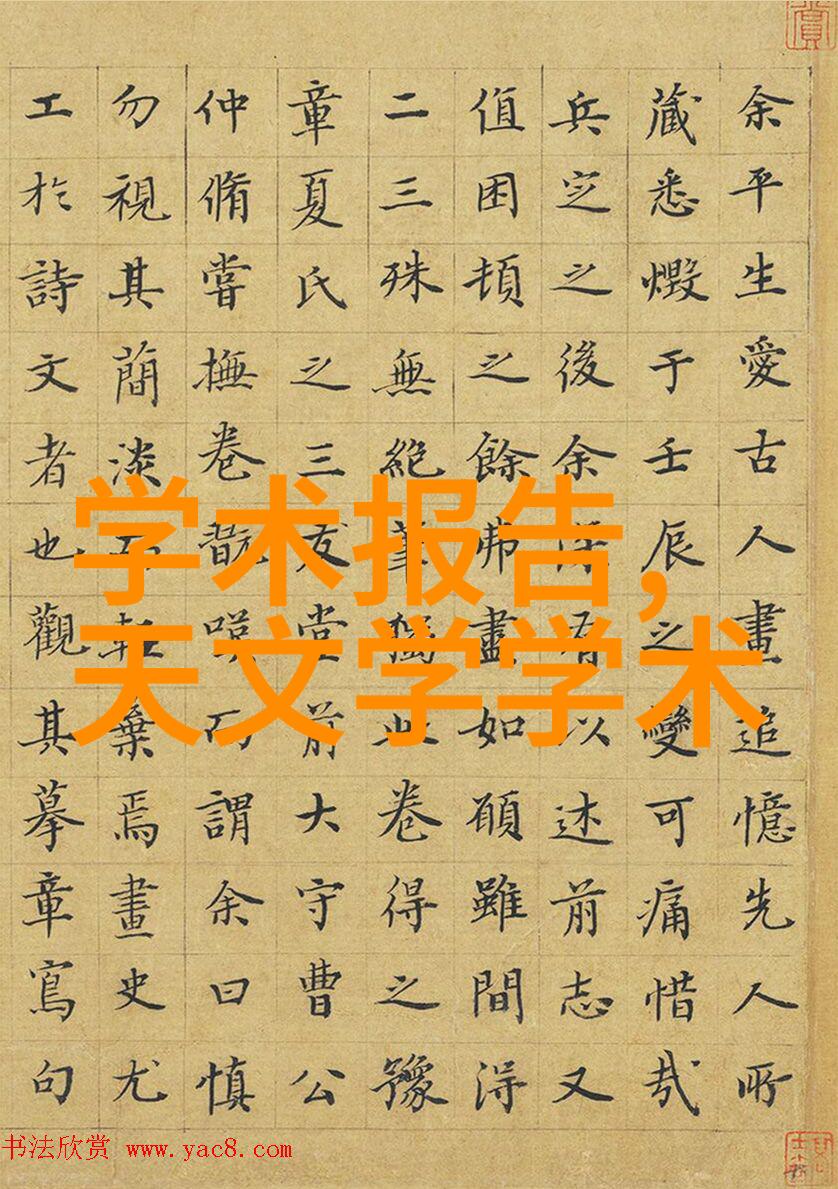 余平生愛古人畫追憶先人所
藏悉燬于壬辰之變可痛惜哉
兵定之後余深有以述前志又
值困頓之餘弗盡如願雖間得
二三殊無絕筆獨此卷得之豫
章夏氏之三友堂前大守曹公
仲脩嘗撫卷翫嘆而謂余曰慎
勿視其簡淡而輕棄焉畫史尤
工於詩文者也觀其摹章寫句
学术报告,
天文学学术
书法欣赏 www.yac8.com